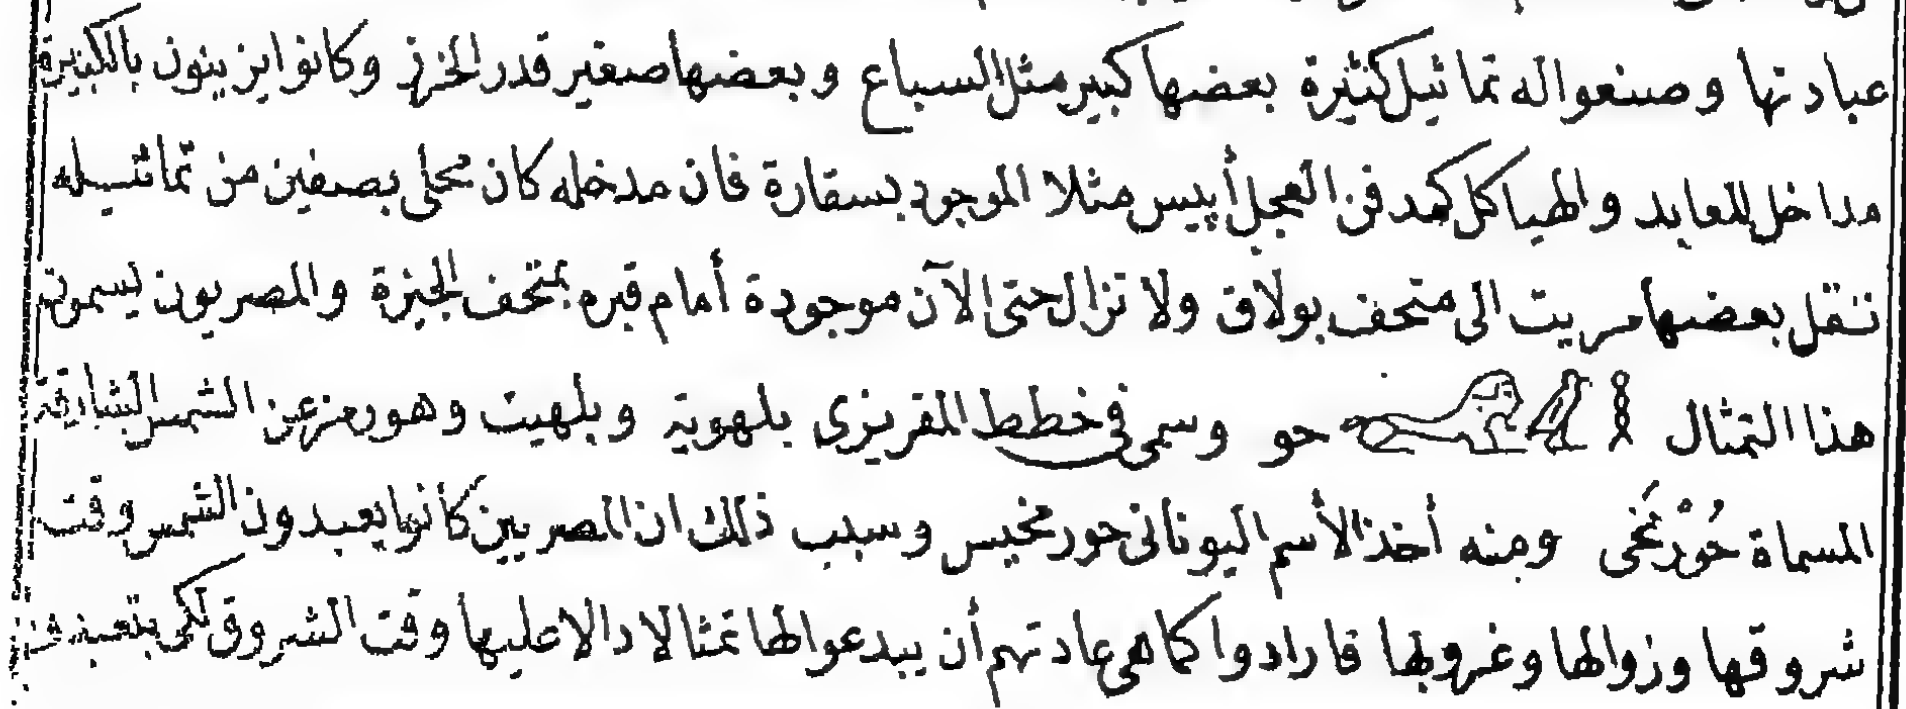 عبادتها وصنعوا له تماثيل كثيرة بعضها كبير مثل السباع وبعضها صغير قدر الخرز وكانوا يزينون بالكبيرة
مداخل المعابد والهياكل كمدفن العجل أبيس مثلا الموجود بسقارة فان مدخله كان محلى بصفين من تماثيله
نقل بعضها مريت الى متحف بولاق ولا تزال حتى الآن موجودة أمام قبره بمتحف الجيزة والمصريون يسمون
هذا التمثال حو وسمى فى خطط المقريزى بلهوية وبلهيت وهو رمز عن الشمس الشارقة
المسماة حُورْمَخى ومنه أخذ الأسم اليونانى حورمخيس وسبب ذلك ان المصريين كأنوا يعبدون الشمس وقت
شروقها وزوالها وغروبها فارادوا كما هى عادتهم أن يبدعوا لها تمثالا دالا عليها وقت الشروق لكى